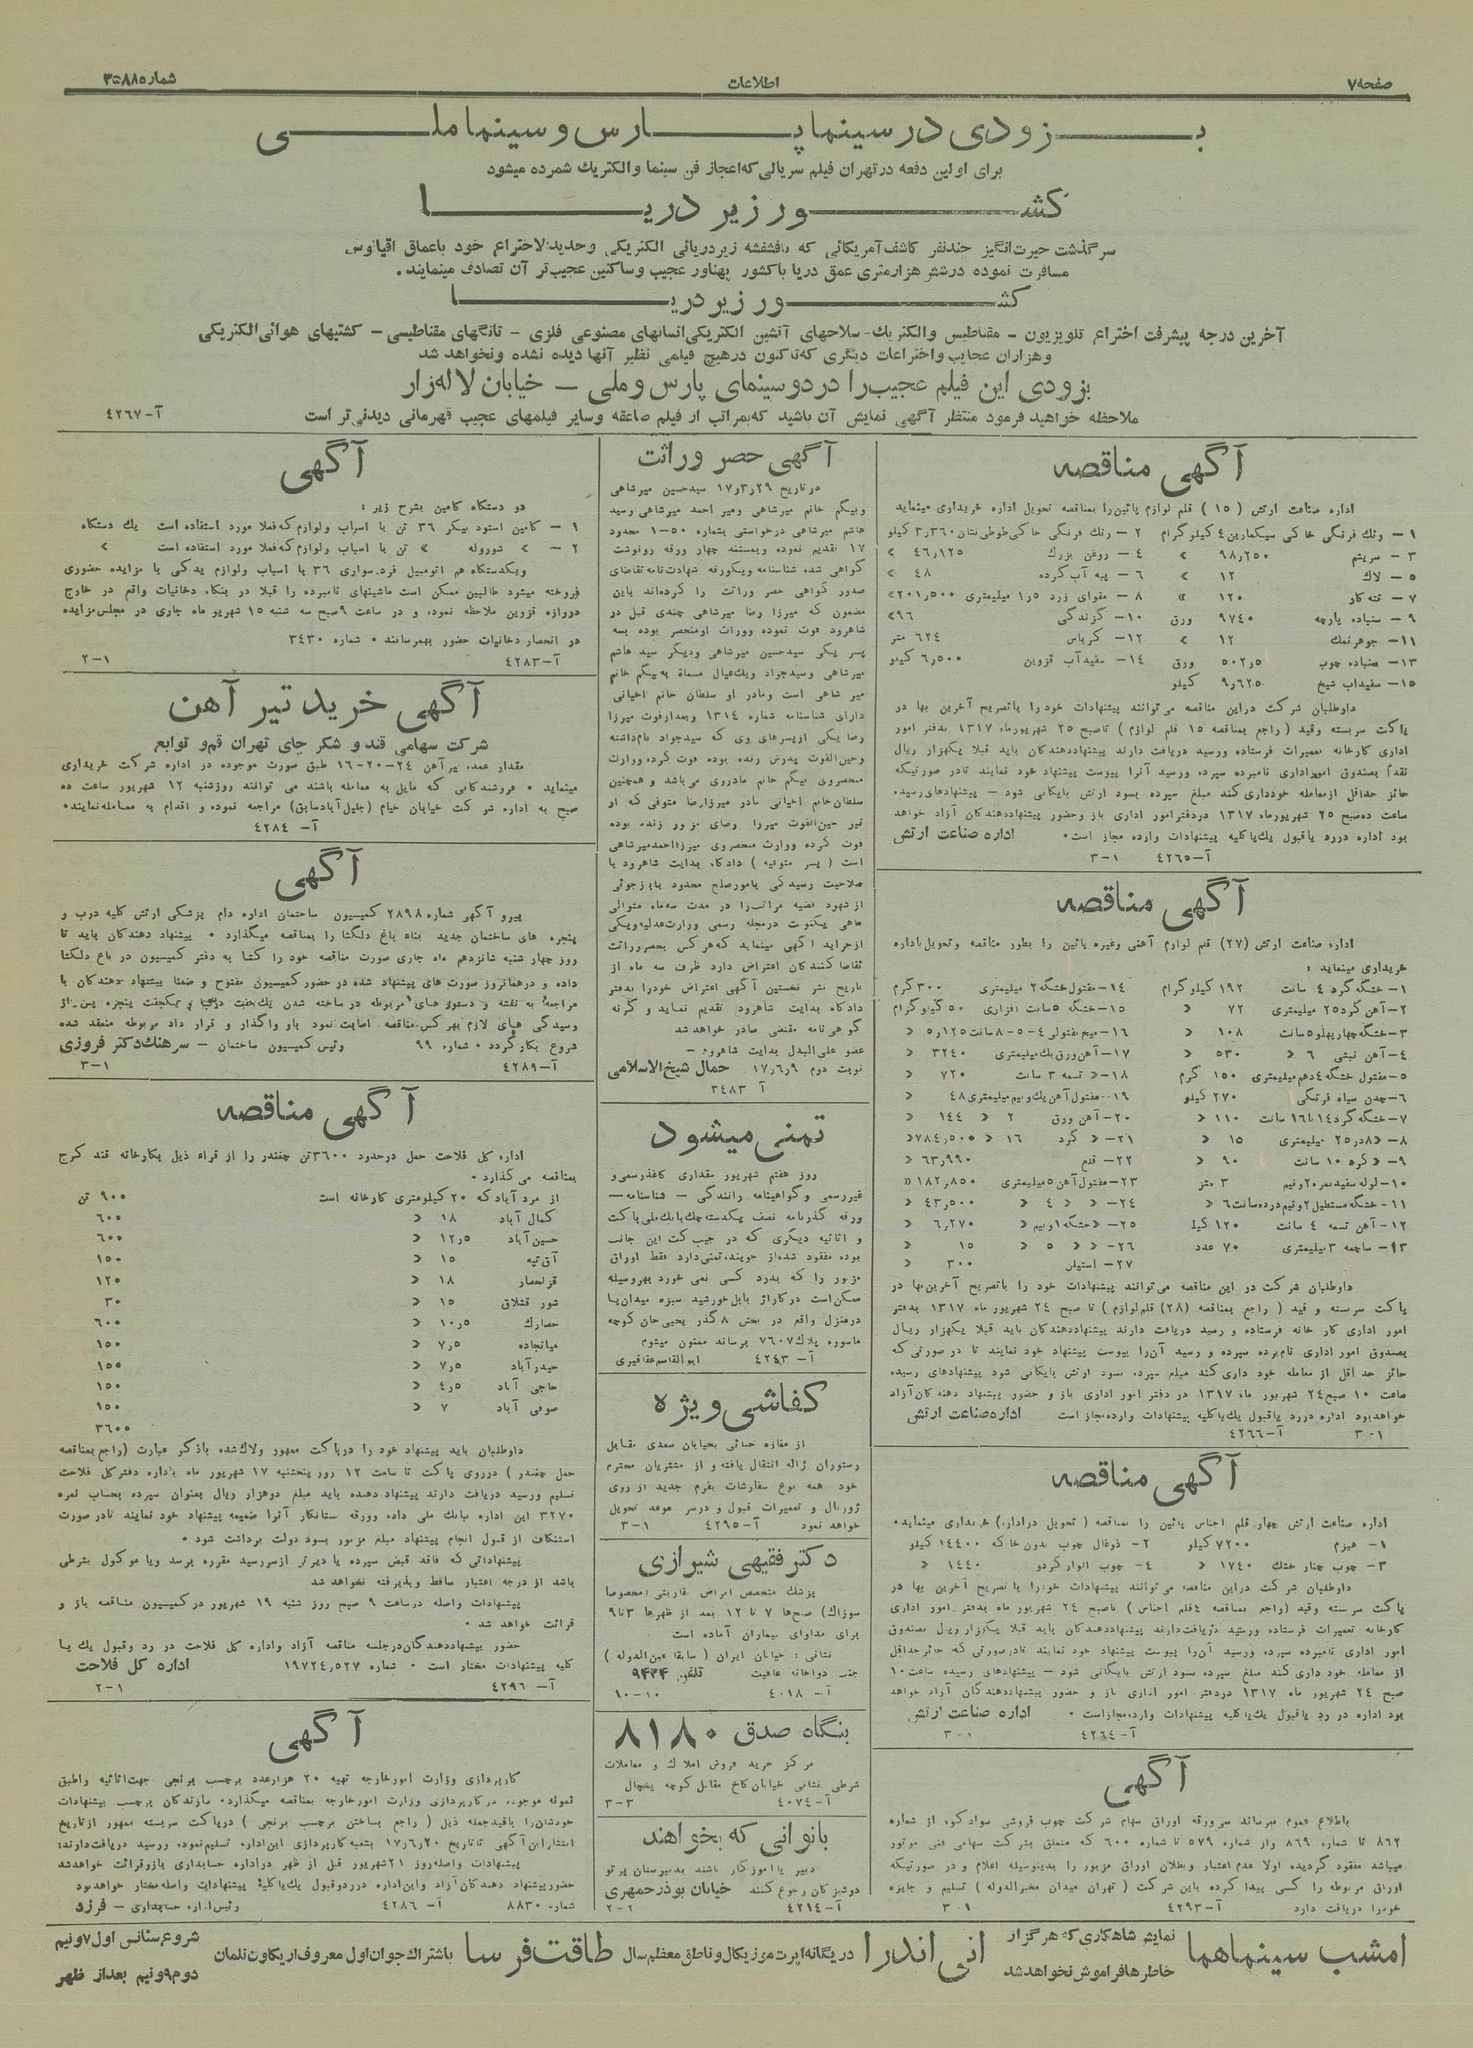 صفحه۷
اطلاعات
شماره۳۵۸۸
بزودی در سینما پارس و سینما ملی
برای اولین دفعه در تهران فیلم سریالی که اعجاز فن سینما والکتریك شمرده میشود
کشور زیر دریا
سرگذشت حیرت‌انگیز چندنفر کاشف آمریکائی که بافشفشه زیردریائی الکتریکی وجدیدالاختراع خود باعماق اقیانوس
مسافرت نموده درشش هزارمتری عمق دریا باکشور پهناور عجیب وساکنین عجیب‌تر آن تصادف مینمایند.
کشور زیر دریا
آخرین درجه پیشرفت اختراع تلویزیون - مقناطیس والکتریك- سلاحهای آتشین الکتریکی انسانهای مصنوعی فلزی - تانگهای مقناطیسی - کشتیهای هوائی الکتریکی
وهزاران عجایب واختراعات دیگری که تاکنون درهیچ فیلمی نظیر آنها دیده نشده ونخواهد شد
بزودی این فیلم عجیب را در دو سینمای پارس و ملی - خیابان لاله‌زار
ملاحظه خواهید فرمود منتظر آگهی نمایش آن باشید که بمراتب از فیلم صاعقه وسایر فیلمهای عجیب قهرمانی دیدنی‌تر است
آ-۴۲۶۷
آگهی مناقصه
اداره صناعت ارتش (۱۵) قلم لوازم پائین را بمناقصه تحویل اداره خریداری مینماید
۳- سریشم ۹۸٫۲۵۰ » ۴- روغن بزرك ۴۶٫۱۲۵ »
۵- لاك ۱۲ » ۶- پیه آب کرده ۴۸ »
۹- سنباده پارچه ۹۷۴۰ ورق ۱۰- گزندگی ۹۶»
۱۱- جوهرنمك ۱۲ » ۱۲- کرباس ۶۲۴ متر
۱۳- سنباده چوب ۵۰۲٫۵ ورق ۱۴- سفیدآب قزوین ۶٫۵۰۰ کیلو
۱۵- سفیداب شیخ ۹٫۶۲۵ کیلو
داوطلبان شرکت دراین مناقصه می‌توانند پیشنهادات خود را باتصریح آخرین بها در
پاکت سربسته وقید (راجع بمناقصه ۱۵ قلم لوازم) تاصبح ۲۵ شهریورماه ۱۳۱۷ بدفتر امور
اداری کارخانه تعمیرات فرستاده ورسید دریافت دارند پیشنهاددهندکان باید قبلا یکهزار ریال
نقداً بصندوق اموراداری نامبرده سپرده ورسید آنرا پیوست پیشنهاد خود نمایند تادر صورتیکه
حائز حداقل ازمعامله خودداری کند مبلغ سپرده بسود ارتش بایکانی شود - پیشنهادهای رسیده
ساعت ده‌صبح ۲۵ شهریورماه ۱۳۱۷ دردفتر امور اداری باز وحضور پیشنهاددهندکان آزاد خواهد
بود اداره دررد یاقبول یك یاکلیه پیشنهادات وارده مجاز است• اداره صناعت ارتش
آ-۴۲۶۵ ۱-۳
آگهی مناقصه
اداره صناعت ارتش (۲۷) قلم لوازم آهنی وغیره پائین را بطور مناقصه وتحویل باداره
خریداری مینماید:
۱- خشکه گرد ۴ سانت ۱۹۲ کیلوگرام ۱۴- مفتول خشکه ۲ میلیمتری ۳۰۰ گرام
۲- آهن گرد ۲۵ میلیمتری ۷۲ » ۱۵- خشکه ۵سانت افزاری ۵۰ کیلوگرام
۳- خشکه چهارپهلو ۵ سانت ۱۰۸ » ۱۶- میخ مفتولی ۴-۵-۸ سانت ۱۲۵٫۵ »
۴- آهن نبشی ۶ » ۵۳۰ » ۱۷- آهن ورق یك میلیمتری ۳۲۴۰ »
۵- مفتول خشکه ۴دهم میلیمتری ۱۵۰ گرم ۱۸- » تسمه ۳ سانت ۷۲۰ »
۶- چدن سیاه فرنگی ۲۷۰ کیلو ۱۹- مفتول آهن یك‌ونیم میلیمتری ۴۸ »
۷- خشکه گرد ۱۴ تا ۱۶ سانت ۱۱۰ » ۲۰- آهن ورق ۲ » ۱۴۴ »
۸- »۸در۲۵ میلیمتری ۱۵ » ۲۱- » گرد ۱۶ » ۷۸۴٫۵۰۰»
۹- » گرد ۱۰ سانت ۹۰ » ۲۲- قلع ۶۳٫۹۹۰ »
۱۰- لوله سفید نمره ۲ونیم ۳ متر ۲۳- مفتول آهن ۵ میلیمتری ۱۸۲٫۸۵۰ »
۱۱- خشکه مستطیل ۲ونیم درده سانت ۶ » ۲۴- » » ۴ » ۴۳٫۵۰۰ »
۱۲- آهن تسمه ۴ سانت ۱۲۰ کیلو ۲۵- » خشکه ۱ونیم » ۶٫۲۷۰ »
۱۳- ساچمه ۳ میلیمتری ۷۰ عدد ۲۶- » » ۵ » ۱۵ »
۲۷- استیلن ۳۰۰ »
داوطلبان شرکت در این مناقصه می‌توانند پیشنهادات خود را باتصریح آخرین بها در
پاکت سربسته و قید (راجع بمناقصه (۲۸) قلم لوازم) تا صبح ۲۴ شهریور ماه ۱۳۱۷ بدفتر
امور اداری کار خانه فرستاده و رسید دریافت دارند پیشنهاددهندکان باید قبلا یکهزار ریال
بصندوق امور اداری نام‌برده سپرده و رسید آن‌را پیوست پیشنهاد خود نمایند تا در صورتی که
حائز حد اقل از معامله خود داری کند مبلغ سپرده بسود ارتش بایکانی شود پیشنهادهای رسیده
ساعت ۱۰ صبح ۲۴ شهریور ماه ۱۳۱۷ در دفتر امور اداری باز و حضور پیشنهاد دهنده کان آزاد
خواهدبود اداره دررد یاقبول یك یاکلیه پیشنهادات وارده مجاز است اداره صناعت ارتش
آ-۴۲۶۶ ۱-۳
آگهی مناقصه
اداره صناعت ارتش چهار قلم اجناس پائین را بمناقصه (تحویل دراداره) خریداری مینماید•
۱- هیزم ۷۲۰۰ کیلو ۲- ذوغال چوب بدون خاکه ۱۴۴۰۰ کیلو
۳- چوب چنار خشك ۱۷۴۰ » ۴- چوب الوار گردو ۱۴۴۰ »
داوطلبان شرکت دراین مناقصه می‌توانند پیشنهادات خودرا باتصریح آخرین بها در
پاکت سربسته وقید (راجع بمناقصه ۴قلم اجناس) تاصبح ۲۴ شهریور ماه بدفتر امور اداری
کارخانه تعمیرات فرستاده ورسید دریافت‌دارند پیشنهاددهندکان باید قبلا یکهزار ریال بصندوق
امور اداری نامبرده سپرده ورسید آن‌را پیوست پیشنهاد خود نمایند تادرصورتی که حائز حداقل
از معامله خود داری کند مبلغ سپرده بسود ارتش بایگانی شود - پیشنهادهای رسیده ساعت ۱۰
صبح ۲۴ شهریور ماه ۱۳۱۷ دردفتر امور اداری باز و حضور پیشنهاد دهندگان آزاد خواهد
بود اداره در رد یاقبول یك یاکلیه پیشنهادات وارده مجازاست• اداره صناعت ارتش
آ-۴۲۶۴ ۱-۳
آگهی
باطلاع عموم میرساند سی‌ورقه اوراق سهام شرکت چوب فروشی سوادکوه از شماره
۸۶۲ تا شماره ۸۶۹ واز شماره ۵۷۹ تا شماره ۶۰۰ که متعلق بشرکت سهامی فنی موتور
میباشد مفقود گردیده اولا عدم اعتبار وبطلان اوراق مزبور را بدینوسیله اعلام و در صورتیکه
اوراق مربوطه را کسی پیدا کرده باین شرکت (تهران میدان مخبرالدوله) تسلیم و جایزه
خودرا دریافت دارد آ-۴۲۹۳ ۱-۳
آگهی حصر وراثت
درتاریخ ۱۷٫۳٫۲۹ سیدحسین میرشاهی
وبیگم خانم میرشاهی ومیر احمد میرشاهی وسید
هاشم میرشاهی درخواستی بشماره ۵۰-۱ محدود
۱۷ تقدیم نموده وبمستند چهار ورقه رونوشت
گواهی شده شناسنامه ویکورقه شهادت‌نامه تقاضای
صدور گواهی حصر وراثت را کرده‌اند باین
مضمون که میرزا رضا میرشاهی چندی قبل در
شاهرود فوت نموده ووراث اومنحصر بوده بسه
پسر یکی سیدحسین میرشاهی ودیگر سید هاشم
میرشاهی وسیدجواد ویك عیال مسماة به بیگم خانم
میر شاهی است ومادر او سلطان خانم اخیانی
دارای شناسنامه شماره ۱۳۱۴ وبعدازفوت میرزا
رضا یکی ازپسرهای وی که سیدجواد نام داشته
وحین‌الفوت پدرش زنده بوده فوت کرده ووراث
منحصروی بیگم خانم مادروی می‌باشد و همچنین
سلطان خانم اخیانی مادر میرزارضا متوفی که او
نیز حین‌الفوت میرزا رضای مزبور زنده بوده
فوت کرده ووراث منحصروی میرزااحمدمیرشاهی
است (پسر متوفیه) دادگاه بدایت شاهرود با
صلاحیت رسیدگی بامورصلح محدود
از شهود قضیه مراتب را در مدت سه‌ماه متوالی
ماهی یکنوبت درمجله رسمی وزارت عدلیه ویکی
ازجراید آگهی مینماید که هرکس بحصروراثت
تقاضا کنندکان اعتراض دارد ظرف سه ماه از
تاریخ نشر نخستین آگهی اعتراض خودرا بدفتر
دادکاه بدایت شاهرود تقدیم نماید و گرنه
گوهی‌نامه مقتضی صادر خواهد شد
عضو علی‌البدل بدایت شاهرود -
نوبت دوم ۱۷٫۶٫۹ جمال شیخ‌الاسلامی
آ ۳۴۸۳
تمنی میشود
روز هفتم شهریور مقداری کاغذرسمی و
غیررسمی وگواهینامه رانندگی - شناسنامه -
ورقه گذرنامه نصف یکدسته چك بانك ملی پاکت
و اثاثیه دیگری که در جیب کت این جانب
بوده مفقود شده از جوینده تمنی دارد فقط اوراق
مزبور را که بدرد کسی نمی خورد بهروسیله
ممکن است درکاراژ بابل خورشید سبزه میدان یا
درمنزل واقع در بخش ۸ گذر یحیی خان کوچه
ماسوره پلاك ۷۶۰۷ برساند ممنون میشوم
آ-۴۲۴۳
کفاشی ویژه
رستوران ژاله انتقال یافته و از مشتریان محترم
خود همه نوع سفارشات بفرم جدید از روی
ژورنال و تعمیرات قبول و درسر موعد تحویل
خواهد نمود آ-۴۲۹۵ ۱-۳
دکتر فقیهی شیرازی
پزشك متخصص امراض تقاربتی (مخصوصا
سوزاك) صبحها ۷ تا ۱۲ بعد از ظهرها ۳تا۹
برای مداوای بیماران آماده است
نشانی: خیابان ایران (سابقا عین‌الدوله)
جنب دواخانه عافیت تلفن ۹۴۳۴
آ- ۴۰۱۸ ۱۰-۱۰
بنگاه صدق ۸۱۸۰
مرکز خرید فروش املاك و معاملات
شرطی نشانی خیابان کاخ مقابل کوچه یخچال
آ-۴۰۷۴ ۳-۳
بانوانی که بخواهند
دبیر یا آموزگار باشند بدبیرستان پرتو
دوشیزکان رجوع کنند خیابان بوذرجمهری
آ-۴۲۱۴ ۲-۲
آگهی
دو دستگاه کامین بشرح زیر:
۱- کامین استود بیکر ۳۶ تن با اسباب ولوازم که فعلا مورد استفاده است یك دستگاه
۲- » شورولە » تن با اسباب ولوازم که فعلا مورد استفاده است »
ویکدستگاه هم اتومبیل فرد سواری ۳۶ با اسباب ولوازم یدکی با مزایده حضوری
فروخته میشود طالبین ممکن است ماشینهای نامبرده را قبلا در بنگاه دخانیات واقع در خارج
دروازه قزوین ملاحظه نموده و در ساعت ۹صبح سه شنبه ۱۵ شهریور ماه جاری در مجلس مزایده
در انحصار دخانیات حضور بهمرسانند• شماره ۳۴۳۰
آ-۴۲۸۳ ۱-۲
آگهی خرید تیر آهن
شرکت سهامی قند و شکر جای تهران قم‌و توابع
مقدار عمده تیرآهن ۲۴-۲۰-۱۶ طبق صورت موجوده در اداره شرکت خریداری
مینماید• فروشندکانی که مایل به معامله باشند می توانند روزشنبه ۱۲ شهریور ساعت ده
صبح به اداره شرکت خیابان خیام (جلیل‌آبادسابق) مراجعه نموده و اقدام به معامله نمایند•
آ- ۴۲۸۴
آگهی
پیرو آگهی شماره ۲۸۹۸ کمیسیون ساختمان اداره دام پزشکی ارتش کلیه درب و
پنجره های ساختمان جدید بناء باغ دلگشا را بمناقصه میگذارد• پیشنهاد دهندکان باید تا
روز چهار شنبه شانزدهم ماه جاری صورت مناقصه خود را کتبا به دفتر کمیسیون در باغ دلگشا
داده و درهمانروز صورت های پیشنهاد شده در حضور کمیسیون مفتوح و ضمنا پیشنهاد دهندگان با
مراجعه به نقشه و دستور های مربوطه در ساخته شدن یك‌جفت درب و یکجفت پنجره پس از
وسیدگی های لازم بهر کس مناقصه اصابت نمود باو واگذار و قرار داد مربوطه منعقد شده
شروع بکار گردد• شماره ۹۹ رئیس کمیسیون ساختمان - سرهنك دکتر فروزی
آ-۴۲۸۹ ۱-۳
آگهی مناقصه
اداره کل فلاحت حمل درحدود ۳۶۰۰تن چغندر را از قراء ذیل بکارخانه قند کرج
بمناقصه می گذارد•
از مرد آباد که ۲۰ کیلومتری کارخانه است ۹۰۰ تن
کمال آباد ۱۸ » ۶۰۰
حسین‌آباد ۱۲٫۵ » ۶۰۰
آق‌تپه ۱۵ » ۱۵۰
قزلحصار ۱۸ » ۱۲۰
شور قشلاق ۱۵ » ۳۰
حصارك ۱۰٫۵ » ۶۰۰
میانجاده ۷٫۵ » ۱۵۰
حیدرآباد ۷٫۵ » ۱۵۰
حاجی آباد ۴٫۵ » ۱۵۰
صوفی آباد ۷ » ۱۵۰
۳۶۰۰
داوطلبان باید پیشنهاد خود را درپاکت ممهور ولاك شده باذکر عبارت (راجع بمناقصه
حمل چغندر) درروی پاکت تا ساعت ۱۲ روز پنجشنبه ۱۷ شهریور ماه باداره دفتر کل فلاحت
تسلیم ورسید دریافت دارند پیشنهاد دهنده باید مبلغ دوهزار ریال بعنوان سپرده بحساب نمره
۳۲۷۰ این اداره ببانك ملی داده وورقه ستانکار آنرا ضمیمه پیشنهاد خود نمایند تادرصورت
استنکاف از قبول انجام پیشنهاد مبلغ مزبور بسود دولت برداشت شود•
پیشنهاداتی که فاقد قبض سپرده یا دیرتر ازسررسید مقرره برسد ویا موکول بشرطی
باشد از درجه اعتبار ساقط وپذیرفته نخواهد شد
پیشنهادات واصله درساعت ۹ صبح روز شنبه ۱۹ شهریور درکمیسیون مناقصه باز و
قرائت خواهد شد•
حضور پیشنهاددهندگان درجلسه مناقصه آزاد واداره کل فلاحت در رد وقبول یك یا
کلیه پیشنهادات مختار است• شماره ۱۹۷۲۴٫۵۲۷ اداره کل فلاحت
آ- ۴۲۹۶ ۱-۲
آگهی
کارپردازی وزارت امورخارجه تهیه ۲۰ هزارعدد برچسب برنجی جهت‌اثاثیه راطبق
نمونه موجوده درکارپردازی وزارت امورخارجه بمناقصه میگذارد• سازندکان برچسب پیشنهادات
خودشان را باقیدجمله ذیل (راجع بساختن برچسب برنجی) درپاکت سربسته ممهور ازتاریخ
انتشار این آگهی تاتاریخ ۱۷٫۶٫۲۰ بشعبه کارپردازی این‌اداره تسلیم‌نموده ورسید دریافت‌دارند:
پیشنهادات واصله‌روز ۲۱شهریور قبل از ظهر دراداره حسابداری بازوقرائت خواهدشد
حضورپیشنهاد دهندکان آزاد واین‌اداره درردوقبول یك یاکلیه پیشنهادات واصله‌مختار خواهدبود
شماره ۸۸۳۰ آ- ۴۲۸۶ رئیس‌اداره حسابداری - فرزد
امشب سینماهما
نمایش شاهکاری که هرگز از
خاطرهافراموش نخواهدشد
انی اندرا
دریگانه اپرت موزیکال وناطق معظم سال طاقت فرسا
باشتراك جوان اول معروف اریکاون تلمان
شروع سئانس اول ۷ونیم
دوم ۹ونیم بعداز ظهر